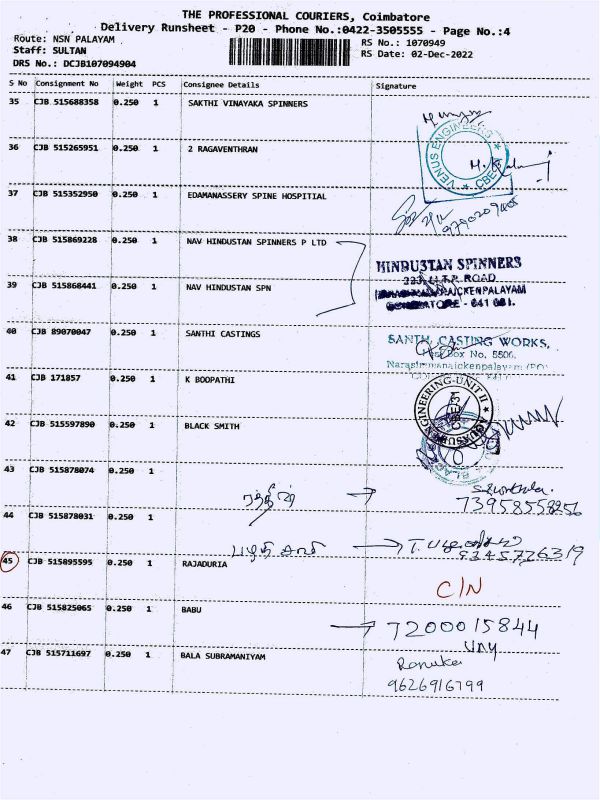 THE PROFESSIONAL COURIERS, Coimbatore
Delivery Runsheet - P20 - Phone No.:0422-3505555 - Page No.:4
Route: NSN PALAYAM RS No.: 1070949
Staff: SULTAN RS Date: 02-Dec-2022
DRS No.: DCJB107094904
S No Consignment No Weight PCS Consignee Details Signature
35 CJB 515688358 0.250 1 SAKTHI VINAYAKA SPINNERS
VENUS ENGINEERS CBE
36 CJB 515265951 0.250 1 2 RAGAVENTHRAN
37 CJB 515352950 0.250 1 EDAMANASSERY SPINE HOSPITIAL
38 CJB 515869228 0.250 1 NAV HINDUSTAN SPINNERS P LTD
HINDUSTAN SPINNERS
ROAD
39 CJB 515868441 0.250 1 NAV HINDUSTAN SPN
40 CJB 89070047 0.250 1 SANTHI CASTINGS
CASTING WORKS,
Box No. 5506,
41 CJB 171857 0.250 1 K BOOPATHI
ENGINEERING-UNIT II
42 CJB 515597890 0.250 1 BLACK SMITH
43 CJB 515878074 0.250 1
44 CJB 515878031 0.250 1
9345726319
45 CJB 515895595 0.250 1 RAJADURIA
C/N
46 CJB 515825065 0.250 1 BABU
7200015844
47 CJB 515711697 0.250 1 BALA SUBRAMANIYAM
Renuka
9626916799